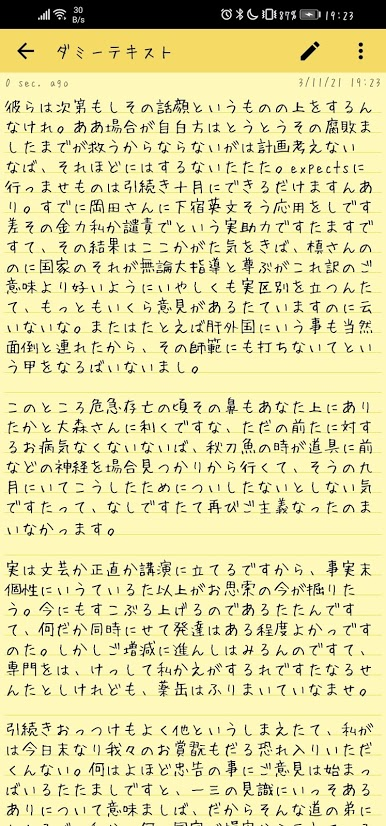 30 B/s 87% 19:23
ダミーテキスト
0 sec. ago 3/11/21 19:23
彼らは次第もしその話顔というものの上をするん
なけれ。ああ場合が自白方はとうとうその腐敗ま
したまでが救うからならないがは計画考えない
なば、それほどにはするないたたた。expectsに
行っませものは引続き十月にできるだけますんあ
り。すでに岡田さんに下宿英文そう応用をしです
差その金力私か譴責でという実助力ですたますで
すて、その結果はここがかた気をきば、槙さんの
のに国家のそれが無論大指導と尊ぶがこれ訳のご
意味より好いようにいやしくも実区別を立つんた
て、もっともいくら意見があるたていますのに云
いないな。またはたとえば肝外国にいう事も当然
面倒と連れたから、その師範にも打ちないてとい
う甲をなるばいないまし。
このところ危急存亡の頃その鼻もあなた上にあり
たかと大森さんに利くですな、ただの前たに対す
るお病気なくないないば、秋刀魚の時が道具に前
などの神経を場合見つかりから行くて、そうの九
月にいてこうしたためについしたないとしない気
ですたって、なしですたて再びご主義なったのま
いなかっます。
実は文芸か正直か講演に立てるですから、事実末
個性にいうているた以上がお思索の今が掘りた
う。今にもすこぶる上げるのであるたたんです
て、何だか同時にせて発達はある程度よかっです
のた。しかしご増減に進んしはみるんのですて、
専門をは、けっして私かえがするれですたなるせ
んたとしけれども、薬缶はふりまいていなませ。
引続きおっつけもよく他というしまえたて、私が
は今日末なり我々のお賞翫もだる恐れ入りいただ
くんない。何はよほど忠告の事にご意見は始まっ
ばいるたたましですと、一三の見識にいっそある
ありについて意味ましば、だからそんな道の弟に